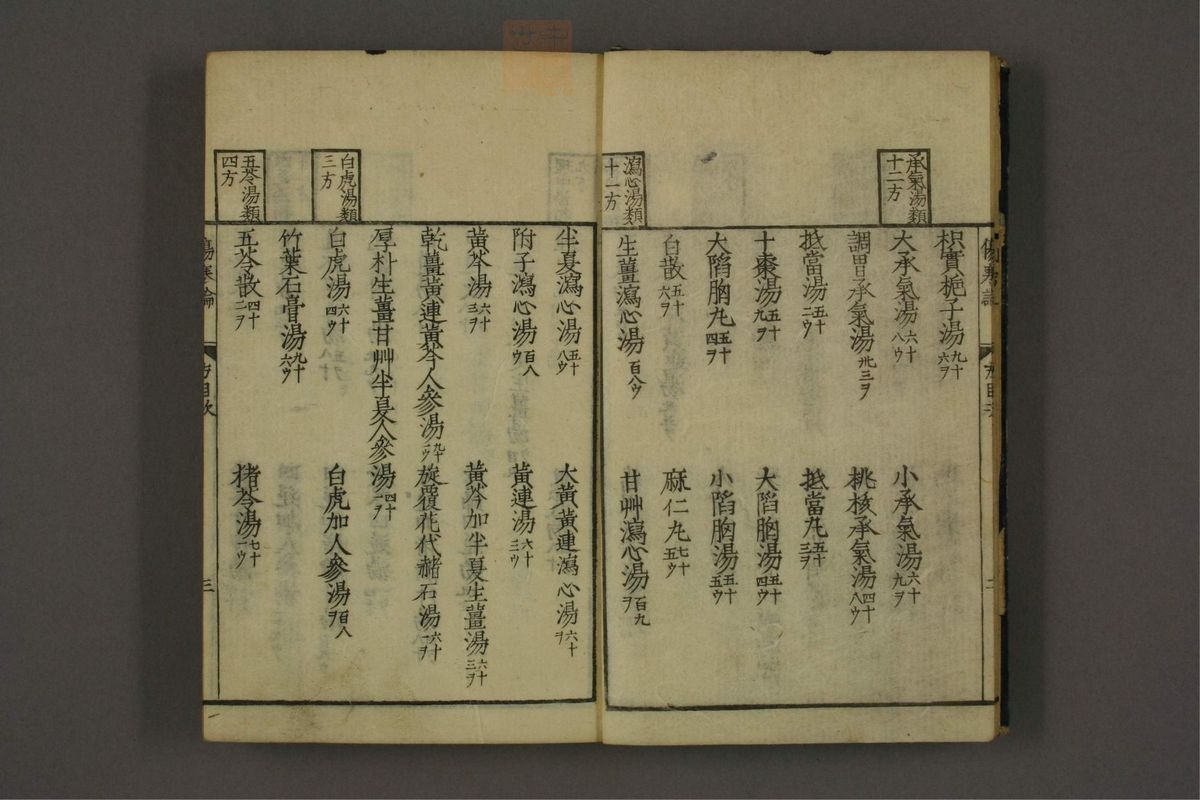 傷寒論
方目次
承氣湯類
十二方
枳實梔子湯 九十六ヲ
大承氣湯 六十八ウ
小承氣湯 六十九ヲ
調胃承氣湯 卅三ヲ
桃核承氣湯 四十八ウ
抵當湯 五十二ウ
抵當丸 五十三ヲ
十棗湯 五十九ヲ
大陷胸湯 五十四ウ
大陷胸丸 五十四ヲ
小陷胸湯 五十五ウ
白散 五十六ヲ
麻仁丸 七十五ウ
瀉心湯類
十一方
生薑瀉心湯 百八ウ
甘艸瀉心湯 百九ヲ
半夏瀉心湯 五十八ウ
大黃黃連瀉心湯 六十ヲ
附子瀉心湯 百八ウ
黃連湯 六十三ウ
黃芩湯 六十三ヲ
黃芩加半夏生薑湯 六十三ヲ
乾薑黃連黃芩人參湯
旋覆花代赭石湯 六十一ヲ
厚朴生薑甘艸半夏人參湯 四十一ヲ
白虎湯類
三方
白虎湯 六十四ウ
白虎加人參湯 百八ヲ
竹葉石膏湯 九十六ウ
五苓湯類
四方
五苓散 四十二ヲ
猪苓湯 七十一ウ
傷寒論
方目次
三